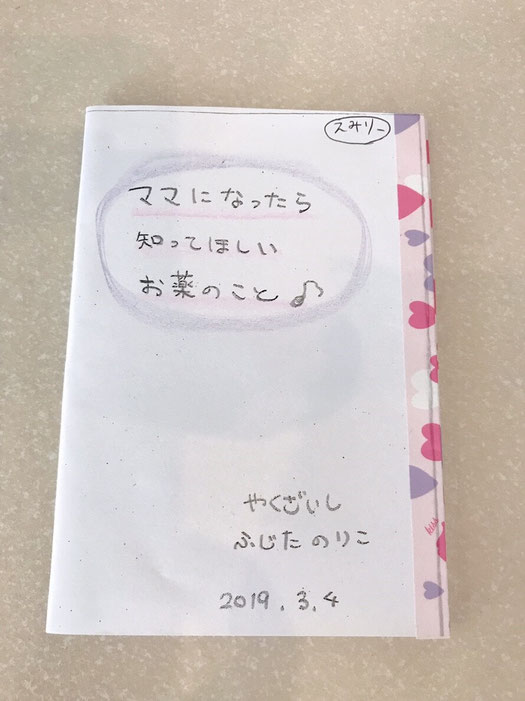 スミリー
ママになったら
知ってほしい
お薬のこと♪
やくざいし
ふじたのりこ
2019.3.4